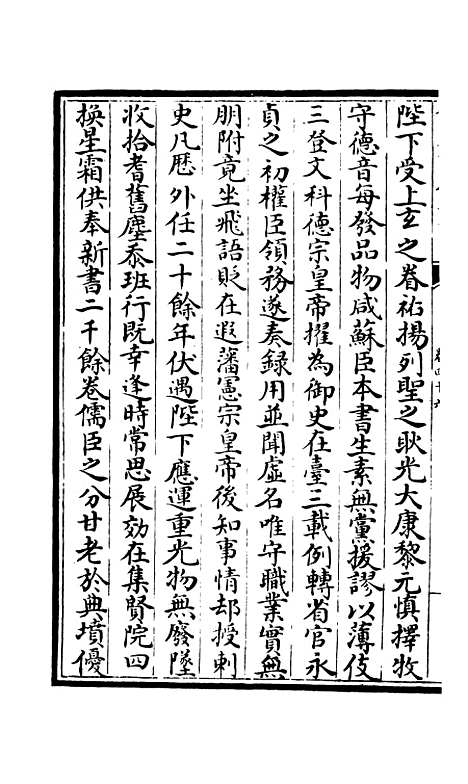 陛下受上玄之眷祐揚列聖之耿光大康黎元慎擇牧
守德音每發品物咸蘇臣本書生素無黨援謬以薄伎
三登文科德宗皇帝擢為御史在臺三載例轉省官永
貞之初權臣領務遂奏録用並聞虛名唯守職業實無
朋附竟坐飛語貶在遐藩憲宗皇帝後知事情却授刺
史凡歷外任二十餘年伏遇陛下應運重光物無廢墜
收拾耆舊塵忝班行既幸逢時常思展効在集賢院四
換星霜供奉新書二千餘卷儒臣之分甘老於典墳優
卷四十六